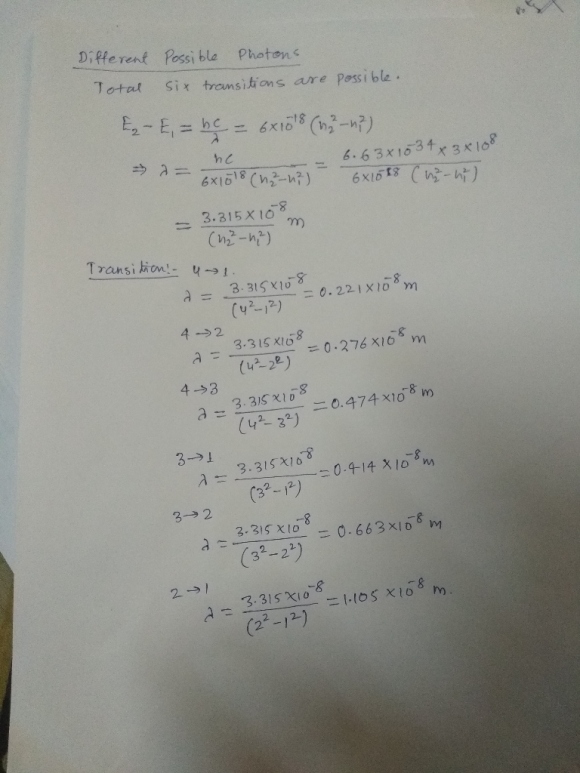 Different Possible Photons
Total six transitions are possible.
E₂ - E₁ = hc/λ = 6×10⁻¹⁸ (n₂² - n₁²)
⇒ λ = hc / 6×10⁻¹⁸ (n₂² - n₁²) = 6.63×10⁻³⁴ × 3×10⁸ / 6×10⁻¹⁸ (n₂² - n₁²)
= 3.315×10⁻⁸ / (n₂² - n₁²) m
Transition:- 4→1.
λ = 3.315×10⁻⁸ / (4² - 1²) = 0.221×10⁻⁸ m
4→2
λ = 3.315×10⁻⁸ / (4² - 2²) = 0.276×10⁻⁸ m
4→3
λ = 3.315×10⁻⁸ / (4² - 3²) = 0.474×10⁻⁸ m
3→1
λ = 3.315×10⁻⁸ / (3² - 1²) = 0.414×10⁻⁸ m
3→2
λ = 3.315×10⁻⁸ / (3² - 2²) = 0.663×10⁻⁸ m
2→1
λ = 3.315×10⁻⁸ / (2² - 1²) = 1.105×10⁻⁸ m.